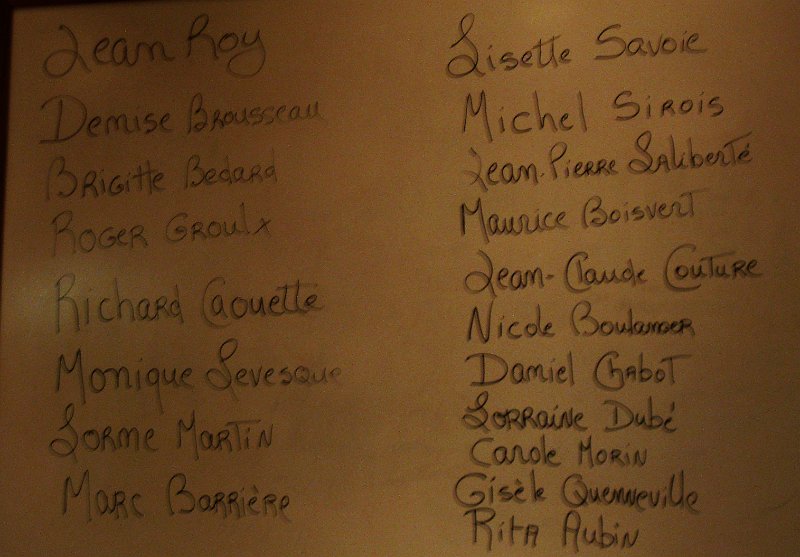 Jean Roy
Denise Brousseau
Brigitte Bedard
Roger Groulx
Richard Caouette
Monique Levesque
Lorne Martin
Marc Barrière
Lisette Savoie
Michel Sirois
Jean-Pierre Laliberté
Maurice Boisvert
Jean-Claude Couture
Nicole Boulanger
Daniel Chabot
Lorraine Dubé
Carole Morin
Gisèle Quenneville
Rita Aubin